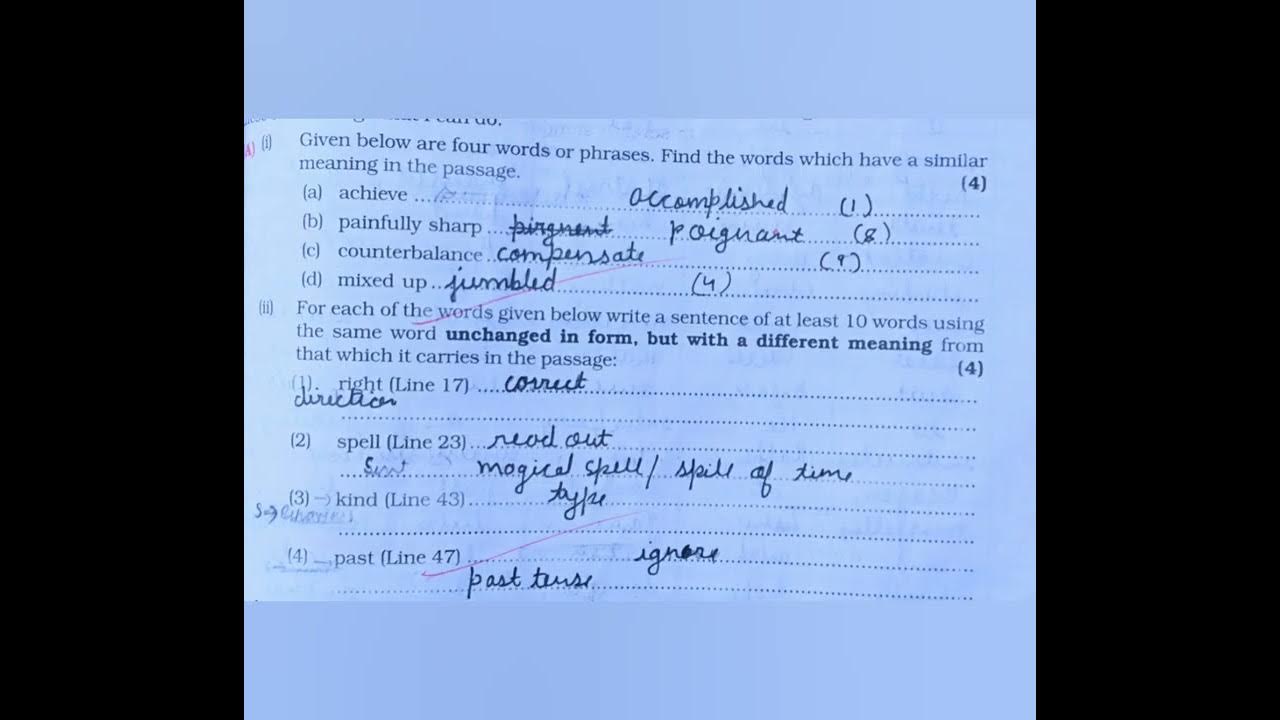 I can do.
A) (i) Given below are four words or phrases. Find the words which have a similar
meaning in the passage. (4)
(a) achieve ... accomplished (1)
(b) painfully sharp ... poignant (8)
(c) counterbalance .. compensate (9)
(d) mixed up .. jumbled (4)
(ii) For each of the words given below write a sentence of at least 10 words using
the same word unchanged in form, but with a different meaning from
that which it carries in the passage: (4)
(1). right (Line 17) ..... correct
direction
(2) spell (Line 23) ... read out
magical spell / spill of time
(3) → kind (Line 43) ... type
(4) past (Line 47) ... ignore
past tense